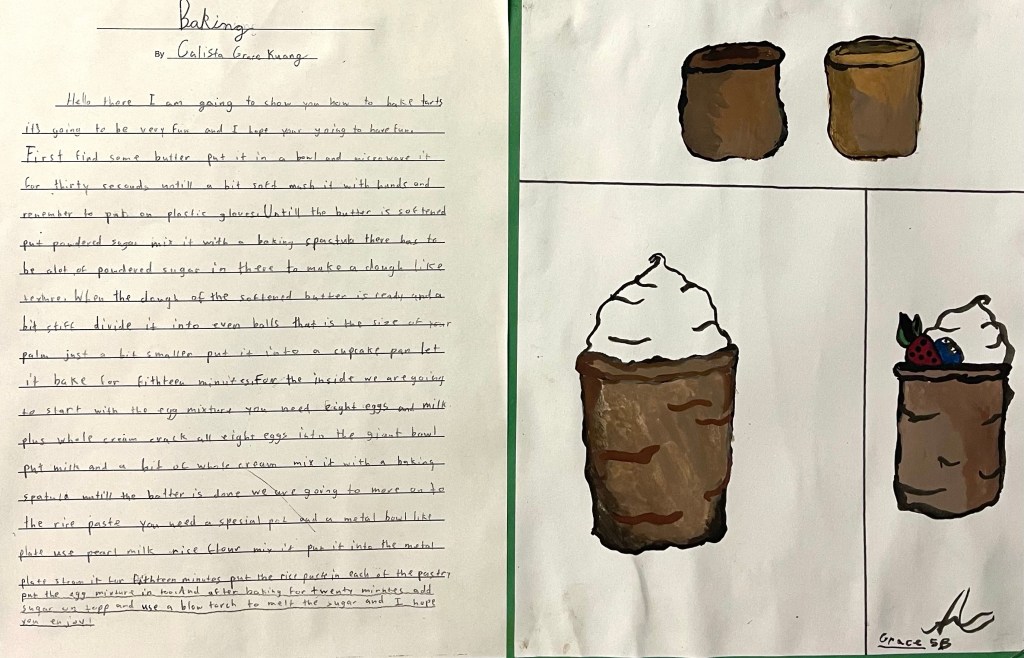 Baking
By Calista Grace Kuang
Hello there I am going to show you how to bake tarts
it's going to be very fun and I hope your going to have fun.
First find some butter put it in a bowl and microwave it
for thirty seconds untill a bit soft mash it with hands and
remember to put on plastic gloves. Untill the butter is softened
put powdered sugar mix it with a baking spactub there has to
be alot of powdered sugar in there to make a dough like
texture. When the dough of the softened butter is ready and a
bit stiff divide it into even balls that is the size of your
palm just a bit smaller put it into a cupcake pan let
it bake for fithteen minutes. For the inside we are going
to start with the egg mixture you need eight eggs and milk
plus whole cream crack all eight eggs into the giant bowl
put milk and a bit of whole cream mix it with a baking
spatula untill the batter is done we are going to move on to
the rice paste you need a special pot and a metal bowl like
plate use pearl milk rice flour mix it put it into the metal
plate steam it for fithteen minutes put the rice paste in each of the pastry
put the egg mixture in too. And after baking for twenty minutes add
sugar on topp and use a blow torch to melt the sugar and I hope
you enjoy!
Grace 5B